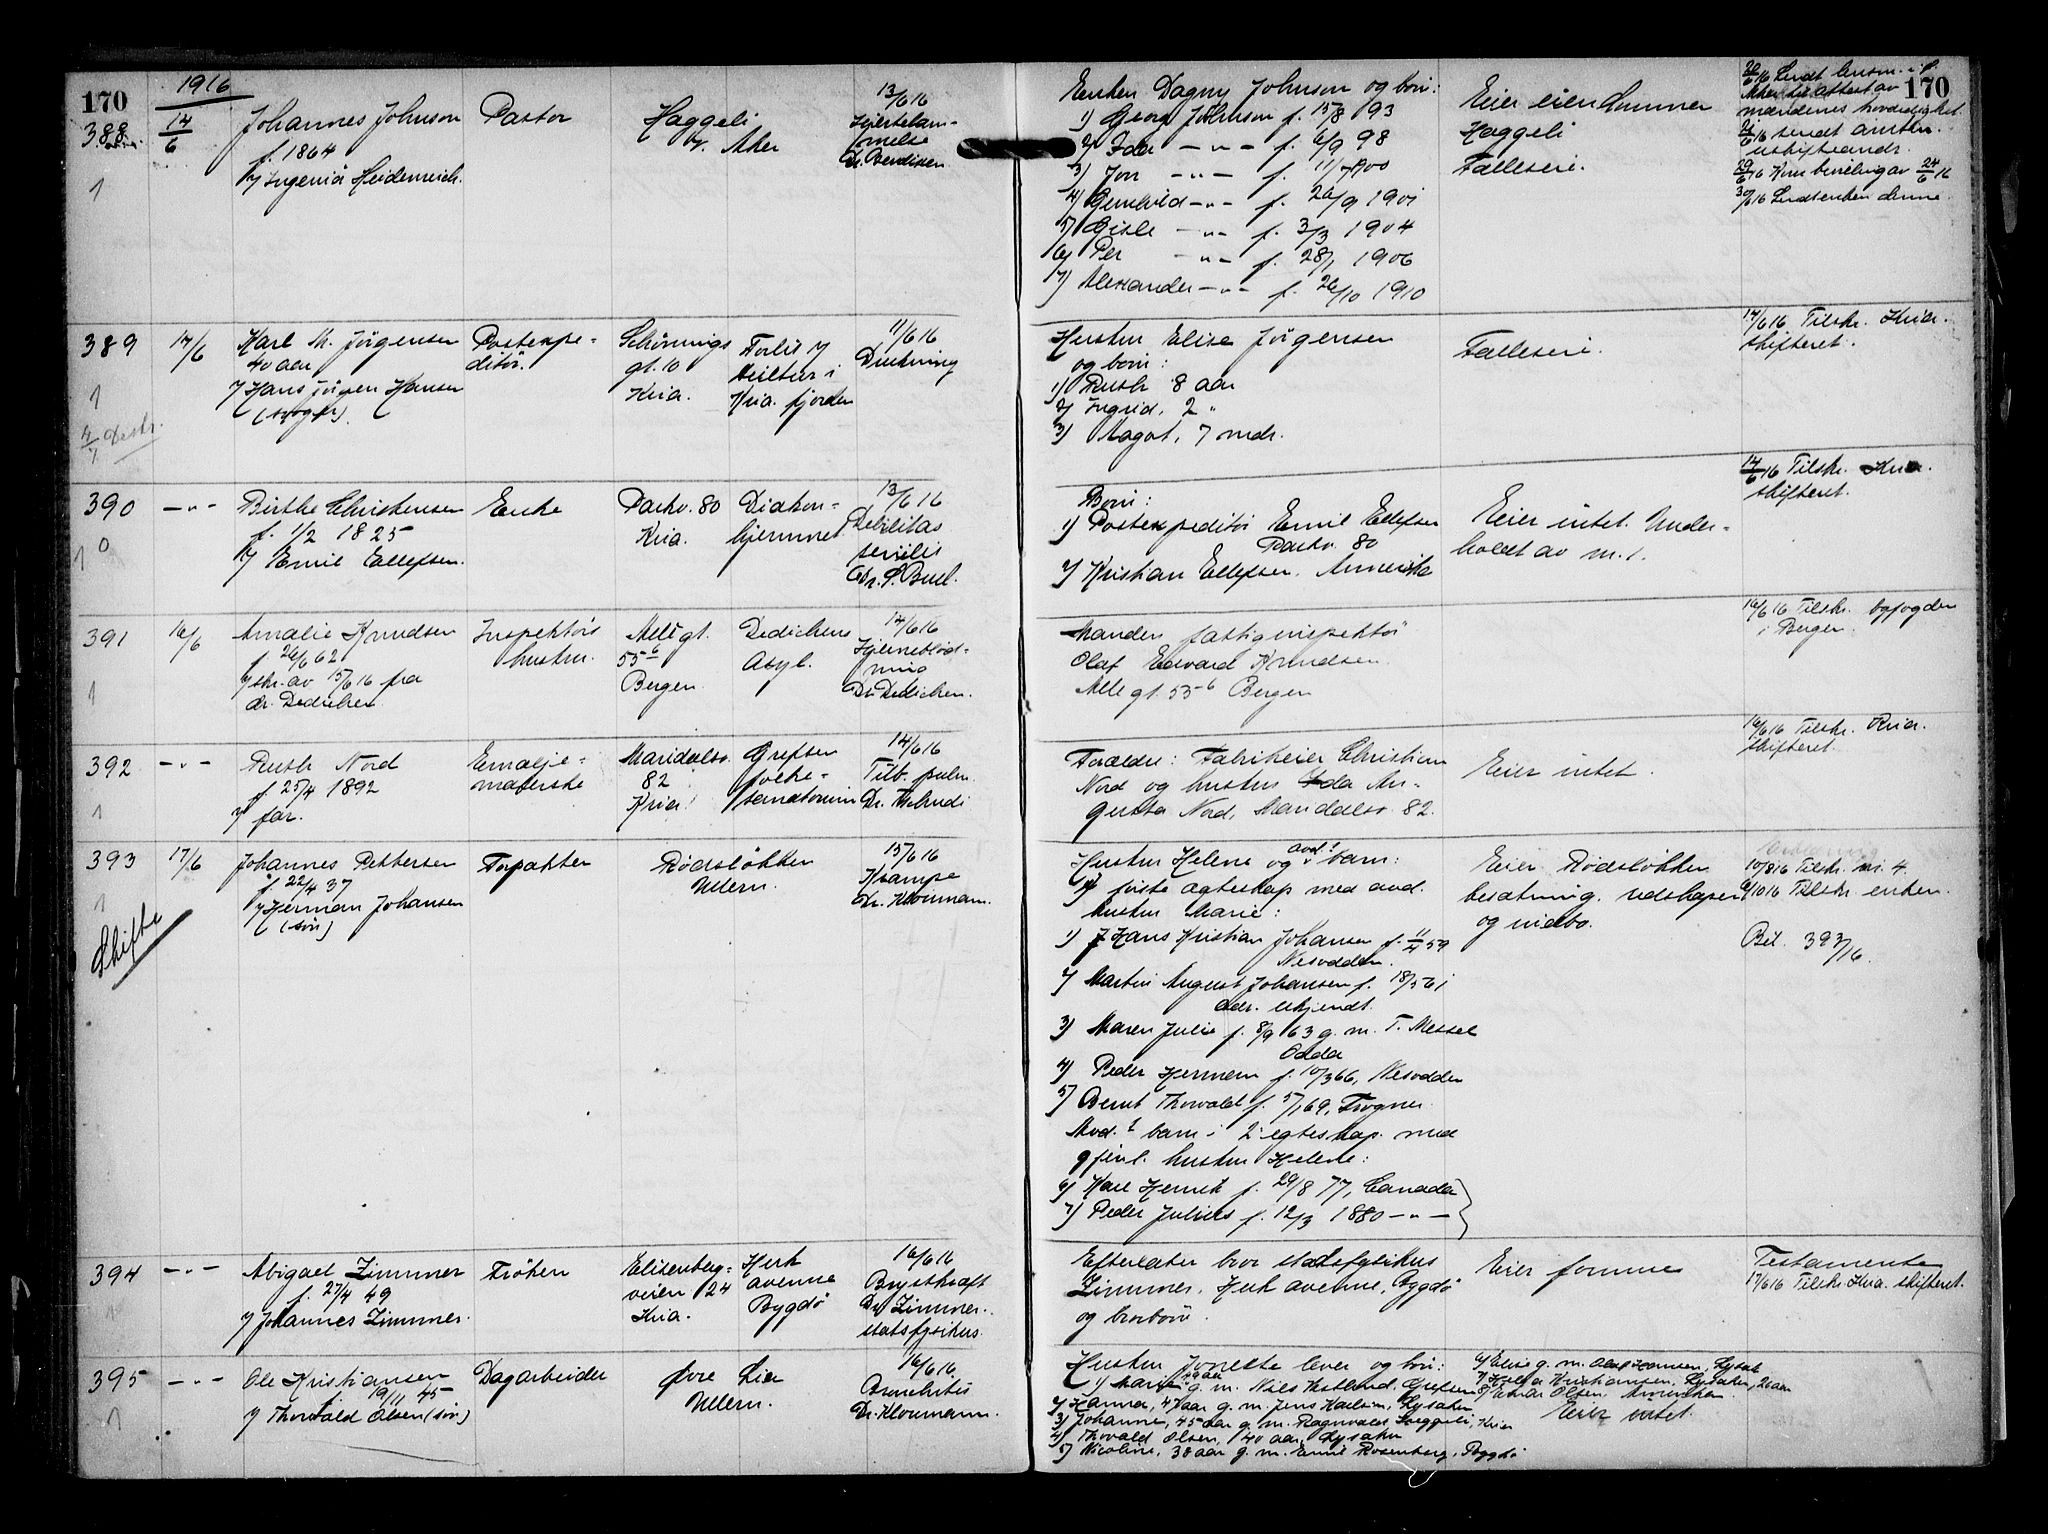 170
1916
388
14/6
Johannes Johnson
f. 1864
v/ Ingenia Heidenreich.
Pastor
Haggeli
v. Aker
13/6 16
Hjertelam-
melse
Enken Dagny Johnson og børn:
1) Georg Johnson f. 15/8 93
2) Ida — " — f. 6/9 98
3) Jon — " — f. 11/7 900
4) Gunhild — " — f. 26/9 1901
5) Gisle — " — f. 3/3 1904
6) Per — " — f. 28/1 1906
7) Alexander — " — f. 26/10 1910
Eier eiendommen
Haggeli
Fælleseie.
170
attest av
mændenes
sendt
29/6 16 Kom bevilling av 24/6 16
30/6 16 Sendt enken denne.
389
14/6
Karl M. Jörgensen
40 aar
v/ Hans Jörgen Hansen
(svoger).
Postexpe-
ditör.
Schönnings
gt. 10
Kria.
Forlis v/
seiltur i
Kria. fjorden
11/6 16
Drukning
Hustru Elise Jörgensen
og børn:
1) Ruth 8 aar
2) Ingrid, 2 "
3) Aagot, 7 mdr.
Fælleseie.
14/6 16 Tilskr. Kria.
skifteret.
1
4/7 Destr.
390
— " —
Birthe Christensen
f. 1/2 1825
v/ Emil Ellefsen.
Enke
Parkv. 80
Kria.
Diakon-
hjemmet
13/6 16
Debilitas
senilis
Dr. S. Buul.
Børn:
1) Postexpeditör Emil Ellefsen
Parkv. 80
2) Kristian Ellefsen, Amerika
Eier intet. Under-
holdt av nr. 1.
14/6 16 Tilskr. Kria.
skifteret.
391
16/6
Amalie Knudsen
f. 26/6 62
v/ skr. av 15/6 16 fra
dr. Dedichen
Inspektörs
hustru.
Allé gt.
55 b
Bergen
Dedichens
Asyl.
14/6 16
Hjerneblöd-
ning
Dr. Dedichen.
Manden fattiginspektör
Olaf Edvard Knudsen
Allé gt. 55 b Bergen
16/6 16 Tilskr. byfogden
i Bergen.
392
— " —
Ruth Nord
f. 25/4 1892
v/ far.
Emalje-
malerske
Maridalsv.
82
Kria.
Grefsen
folke-
sanatorium
14/6 16
Tub. pulm.
Dr. Tschudi
Forældre: Fabrikeier Christian
Nord og hustru Ida Au-
gusta Nord, Maridalsv. 82.
Eier intet.
16/6 16 Tilskr. Kria.
skifteret.
393
17/6
Johannes Pettersen
f. 22/4 37
v/ Herman Johansen
(sön)
Forpakter
Rödslökken
Ullern.
15/6 16
Krampe
Dr. Kloumann.
Skifte
Hustru Helene og barn:
første ægteskap med avd.
hustru Marie:
1) Hans Kristian Johansen f. 11/4 59
Nesodden.
2) Martin August Johansen f. 18/5 61
adr. ukjendt.
3) Maren Julie f. 8/9 63 g. m. T. Messel
Odda
4) Peder Herman f. 10/3 66, Nesodden
5) Bernt Thorvald f. 5/1 69, Frogner
barn i 2. egteskap med
gjenl. hustru Helene:
6) Karl Henrik f. 29/8 77, Canada
7) Peder Julius f. 12/3 1880 — " —
Eier Rödslökken
besætning, redskaper
og indbo.
10/8 16 Tilskr. nr. 4.
9/10 16 Tilskr. enken.
Bil. 393/16.
394
— " —
Abigael Zimmer
f. 27/4 49
v/ Johannes Zimmer.
Fröken
Elisenberg-
veien 24
Kria.
Huk
avenue
Bygdö
16/6 16
Brystkræft
Dr Zimmer.
statsfysikus.
Efterlater bror statsfysikus
Zimmer, Huk avenue, Bygdö
og brorbørn.
Eier formue
Testamente
17/6 16 Tilskr. Kria. skifteret.
395
— " —
Ole Kristiansen
f. 19/11 45
v/ Thorvald Olsen (sön)
Dagarbeider
Övre Lia
Ullern.
16/6 16.
Bronchitis
Dr. Kloumann.
Hustru Jonette lever og børn:
1) Marie g. m. Nils Vestlund, Grefsen
2) Hanna, 47 aar g. m. Jens Karlsen, Lysaker
3) Johanne, 45 aar g. m. Ragnvald Kria
4) Thorvald Olsen, 40 aar, Lysaker
5) Nicoline, 38 aar g. m. Emil Rosenberg, Bygdö
6) Elise g. m. Olaf Hansen, Lysak.
7) Helga Kristiansen, Lysaker, 26 aar
8) Einar Olsen, Amerika.
Eier intet.